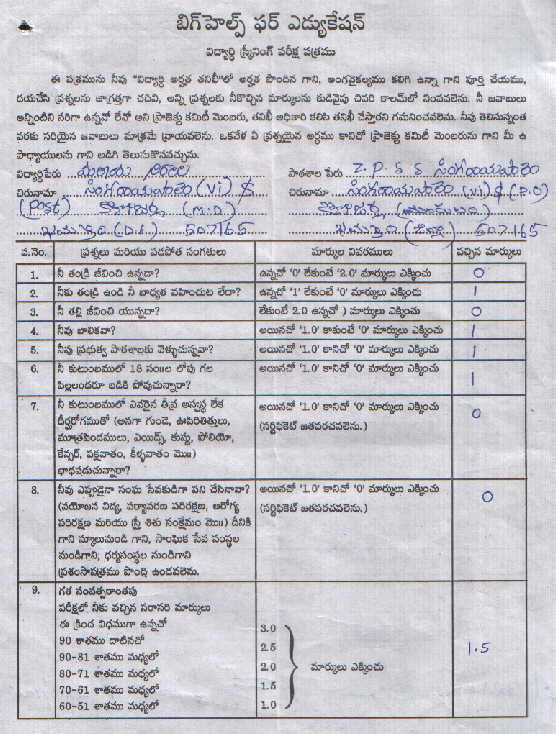 బిగ్‌హెల్ప్ ఫర్ ఎడ్యుకేషన్
విద్యార్థి స్క్రీనింగ్ పరీక్ష పత్రము
ఈ పత్రమును నీవు "విద్యార్థి అర్హత తనిఖీ"లో అర్హత పొందిన గాని, అంగవైకల్యము కలిగి ఉన్నా గాని పూర్తి చేయుము,
దయచేసి ప్రశ్నలను జాగ్రత్తగా చదివి, అన్ని ప్రశ్నలకు నీకొచ్చిన మార్కులను కుడివైపు చివరి కాలమ్‌లో నింపవలెను. నీ జవాబులు
అన్నింటిని సరిగా ఉన్నవో లేవో అని ప్రాజెక్టు కమిటీ మెంబరు, తనిఖీ అధికారి కలిసి తనిఖీ చేస్తారని గమనించవలెను. నీవు తెలిసినంత
వరకు సరియైన జవాబులు మాత్రమే వ్రాయవలెను. ఒకవేళ ఏ ప్రశ్నయైన అర్థము కానిచో ప్రాజెక్టు కమిటీ మెంబరును గాని మీ ఉ
పాధ్యాయులను గాని అడిగి తెలుసుకొనవచ్చును.
విద్యార్థిపేరు పాఠశాల పేరు Z.P.S.S సింగరాయపాలెం
చిరునామా సింగరాయపాలెం (Vi) & చిరునామా సింగరాయపాలెం (Vi) & (P.O)
(Post) (M.D)
(D.t) 507165 507165
వ.నెం. ప్రశ్నలు మరియు పడపోత సంగతులు మార్కుల వివరములు వచ్చిన మార్కులు
1. నీ తండ్రి జీవించి ఉన్నదా? ఉన్నచో '0' లేకుంటే '2.0' మార్కులు ఎక్కించు 0
2. నీకు తండ్రి ఉండి నీ బాధ్యత వహించుట లేదా? ఉన్నచో '1' లేకుంటే '0' మార్కులు ఎక్కించు 1
3. నీ తల్లి జీవించి యున్నదా? లేకుంటే 2.0 ఉన్నచో ) మార్కులు ఎక్కించు 0
4. నీవు బాలికవా? అయినచో '1.0' కాకుంటే '0' మార్కులు ఎక్కించు 1
5. నీవు ప్రభుత్వ పాఠశాలకు వెళ్ళుచున్నావా? అయినచో '1.0' కానిచో '0' మార్కులు ఎక్కించు 1
6. నీ కుటుంబములో 16 సం॥ల లోపు గల అయినచో '1.0' కానిచో '0' మార్కులు ఎక్కించు 1
పిల్లలందరూ బడికి పోవుచున్నారా?
7. నీ కుటుంబములో ఎవరైన తీవ్ర అస్వస్థ లేక అయినచో '1.0' కానిచో '0' మార్కులు ఎక్కించు 0
దీర్ఘరోగముతో (అనగా గుండె, ఊపిరితిత్తులు, (సర్టిఫికెట్ జతపరచవలెను.)
మూత్రపిండములు, ఎయిడ్స్, కుష్ఠు, పోలియో,
కేన్సర్, పక్షవాతం, కీళ్ళవాతం మొ॥)
బాధపడుచున్నారా?
8. నీవు ఎప్పుడైనా సంఘ సేవకుడిగా పని చేసినావా? అయినచో '1.0' కానిచో '0' మార్కులు ఎక్కించు 0
(వయోజన విద్య, పర్యావరణ పరిరక్షణ, ఆరోగ్య (సర్టిఫికెట్ జతపరచవలెను.)
పరిరక్షణ మరియు స్త్రీ శిశు సంక్షేమం మొ॥) దీనికి
గాని స్కూలునుండి గాని, సాంఘిక సేవ సంస్థల
నుండిగాని, ధర్మసంస్థల నుండిగాని
ప్రశంసాపత్రము పొంది ఉండవలెను.
9. గత సంవత్సరాంతపు
పరీక్షలో నీకు వచ్చిన సరాసరి మార్కులు
ఈ క్రింద విధముగా ఉన్నచో
90 శాతము దాటినచో 3.0
90-81 శాతము మధ్యలో 2.5
80-71 శాతము మధ్యలో 2.0 మార్కులు ఎక్కించు 1.5
70-61 శాతము మధ్యలో 1.5
60-51 శాతము మధ్యలో 1.0